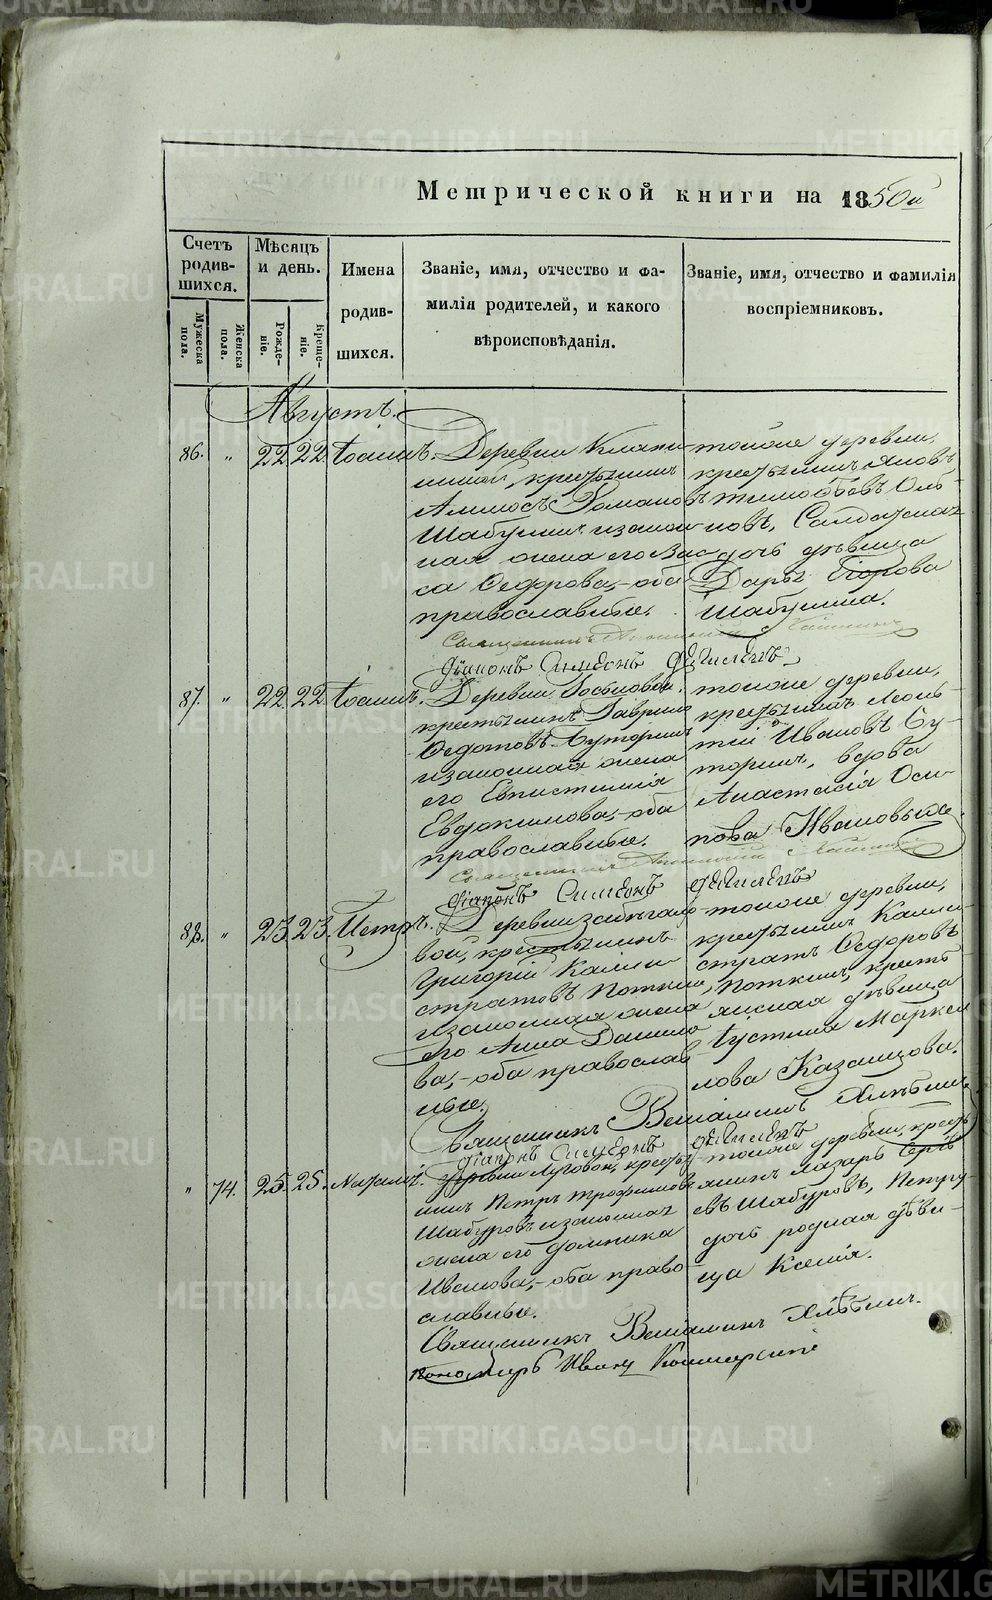 Метрической книги на 1850й
Счетъ родившихся.
Мужеска пола.
Женска пола.
Мѣсяцъ и день.
Рожденіе.
Крещеніе.
Имена родившихся.
Званіе, имя, отчество и фамилія родителей, и какого вѣроисповѣданія.
Званіе, имя, отчество и фамилія воспріемниковъ.
Августъ.
86. " 22. 22. Іоаннъ.
Деревни
крестьянинъ
Романовъ
Шабунинъ и закон-
ная жена его Васи-
са Ѳедорова, – оба
православные.
тойже деревни,
крестьянинъ Яковъ
Тимоѳеевъ
Солдатская
дочь дѣвица
Дарья Егорова
Шабунина.
Священникъ
Діаконъ Симеонъ
87. " 22. 22. Іоаннъ.
Деревни
крестьянинъ Гаврило
Ѳедотовъ Буторинъ
и законная жена
его Евпистимія
Евдокимова, – оба
православные.
тойже деревни,
крестьянинъ Леон-
тій Ивановъ Бу-
торинъ, вдова
Анастасія Оси-
пова Ивановыхъ.
Священникъ
Діаконъ Симеонъ
88. " 23. 23. Петръ.
Деревни
вой, крестьянинъ
Григорій Калли-
стратовъ Поткинъ,
и законная жена
его Анна Данило-
ва, – оба православ-
ные.
тойже деревни,
крестьянинъ Калли-
стратъ Ѳедоровъ
Поткинъ, кресть-
янская дѣвица
Іустина Маркел-
лова Казанцова.
Священникъ Веніаминъ Хлѣбинъ
Діаконъ Симеонъ
" 74. 25. 25. Наталія.
Деревни Луговой, кресть-
нинъ Петръ Трофимовъ
Шабуровъ и законная
жена его Домника
Иванова, – оба право-
славные.
тойже деревни, кресть-
янинъ Лазарь Сергѣ-
евъ Шабуровъ, Петру
дочь родная дѣви-
ца Ксенія.
Священникъ Веніаминъ Хлѣбинъ.
Пономарь Иванъ
METRIKI.GASO-URAL.RU